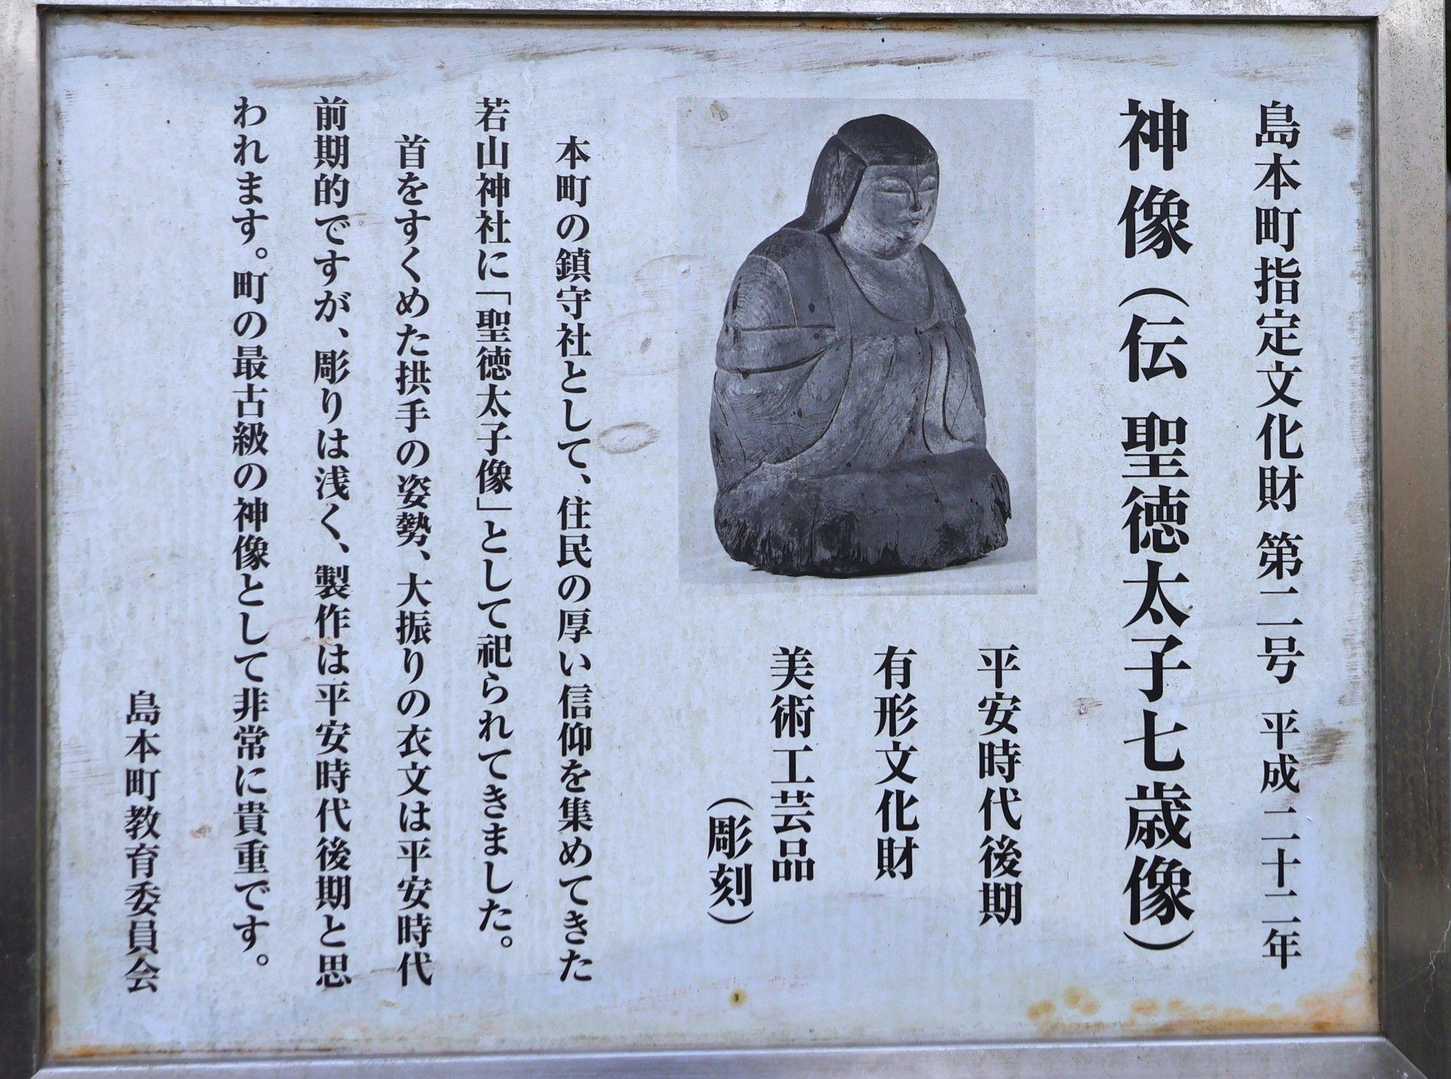 島本町指定文化財 第二号 平成二十二年
神像（伝 聖徳太子七歳像）
平安時代後期
有形文化財
美術工芸品
（彫刻）
本町の鎮守社として、住民の厚い信仰を集めてきた
若山神社に「聖徳太子像」として祀られてきました。
首をすくめた拱手の姿勢、大振りの衣文は平安時代
前期的ですが、彫りは浅く、製作は平安時代後期と思
われます。町の最古級の神像として非常に貴重です。
島本町教育委員会